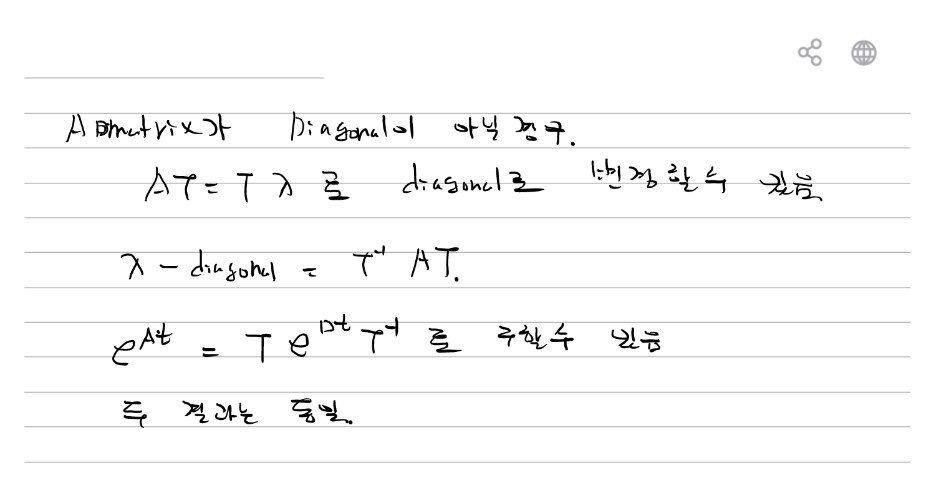 A matrix가 Diagonal이 아닐 경우.
AT = T λ 로 diagonal로 변경할 수 있음
λ - diagonal = T⁻¹ AT.
e^{At} = T e^{Dt} T⁻¹ 로 구할 수 있음
두 결과는 동일.